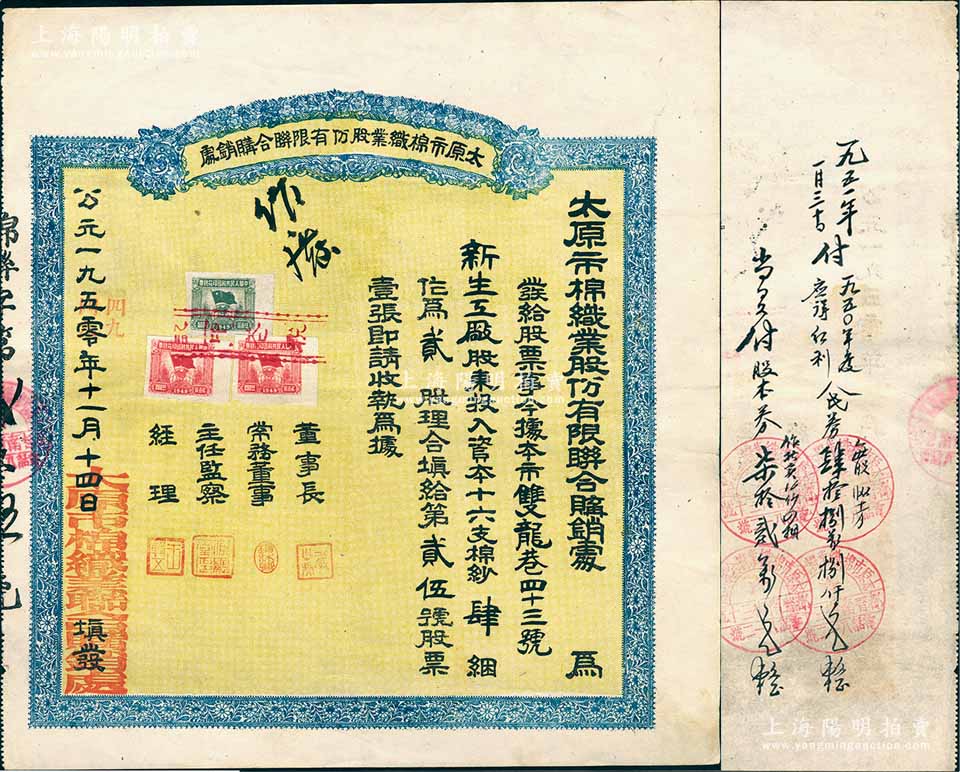 上海陽明拍賣
www.yangmingauction.com
太原市棉織業股份有限聯合購銷處
太原市棉織業股份有限聯合購銷處 為
發給股票事今據本市雙龍巷四十三號
新生工廠股東投入資本十六支棉紗肆綑
作為貳股理合填給第貳伍號股票
壹張即請收執為據
作
董事長
常務董事
主任監察
經理
四九
公元一九五零年十一月十四日
填發
一九五一年
付一九五〇年度
紅利
肆拾捌萬捌仟元整
付股本券柒拾貳萬元整
上海陽明拍賣
www.yangmingauction.com